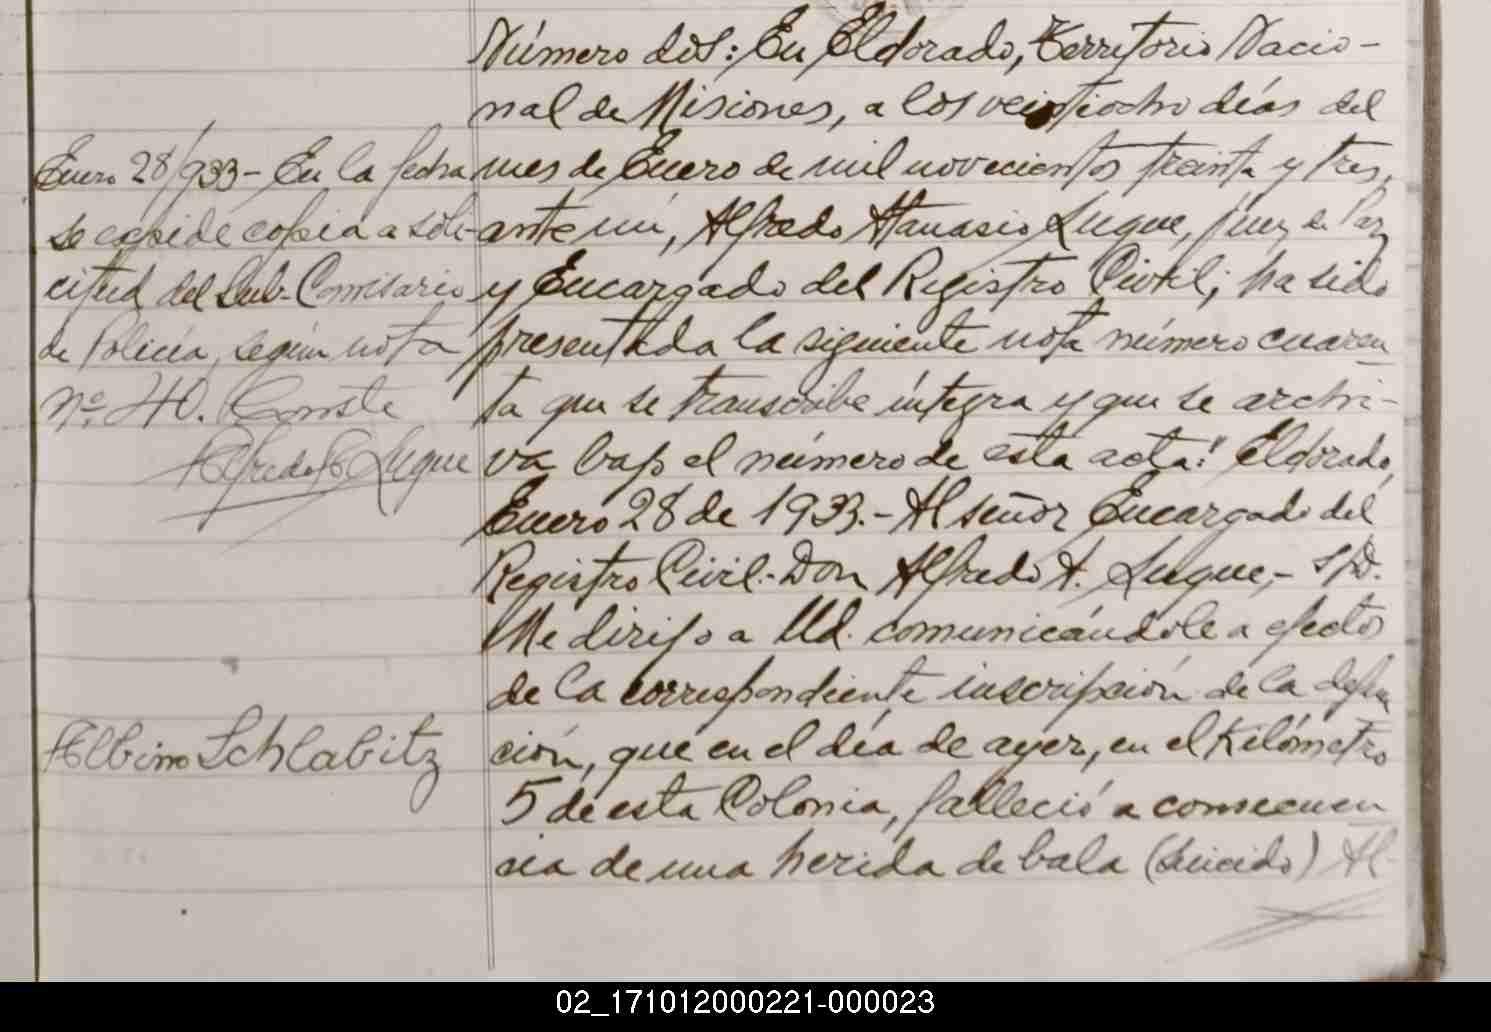 Número dos: En Eldorado, Territorio Nacio-
nal de Misiones, a los veintiocho días del
mes de Enero de mil novecientos treinta y tres,
ante mí, Alfredo Atanasio Luque, juez de Paz
y Encargado del Registro Civil; ha sido
presentada la siguiente nota número cuaren
ta que se transcribe íntegra y que se archi-
va bajo el número de esta acta: "Eldorado,
Enero 28 de 1933.- Al señor Encargado del
Registro Civil.- Don Alfredo A. Luque,- S/D.
Me dirijo a Ud. comunicándole a efectos
de la correspondiente inscripción de la defun
ción, que en el día de ayer, en el Kilómetro
5 de esta Colonia, falleció a consecuen
cia de una herida de bala (suicido) Al-
Enero 28/933- En la fecha
se expide copia a soli-
citud del Sub-Comisario
de Policía, según nota
nº 40. Conste
Alfredo A Luque
Albino Schlabitz
02_171012000221-000023